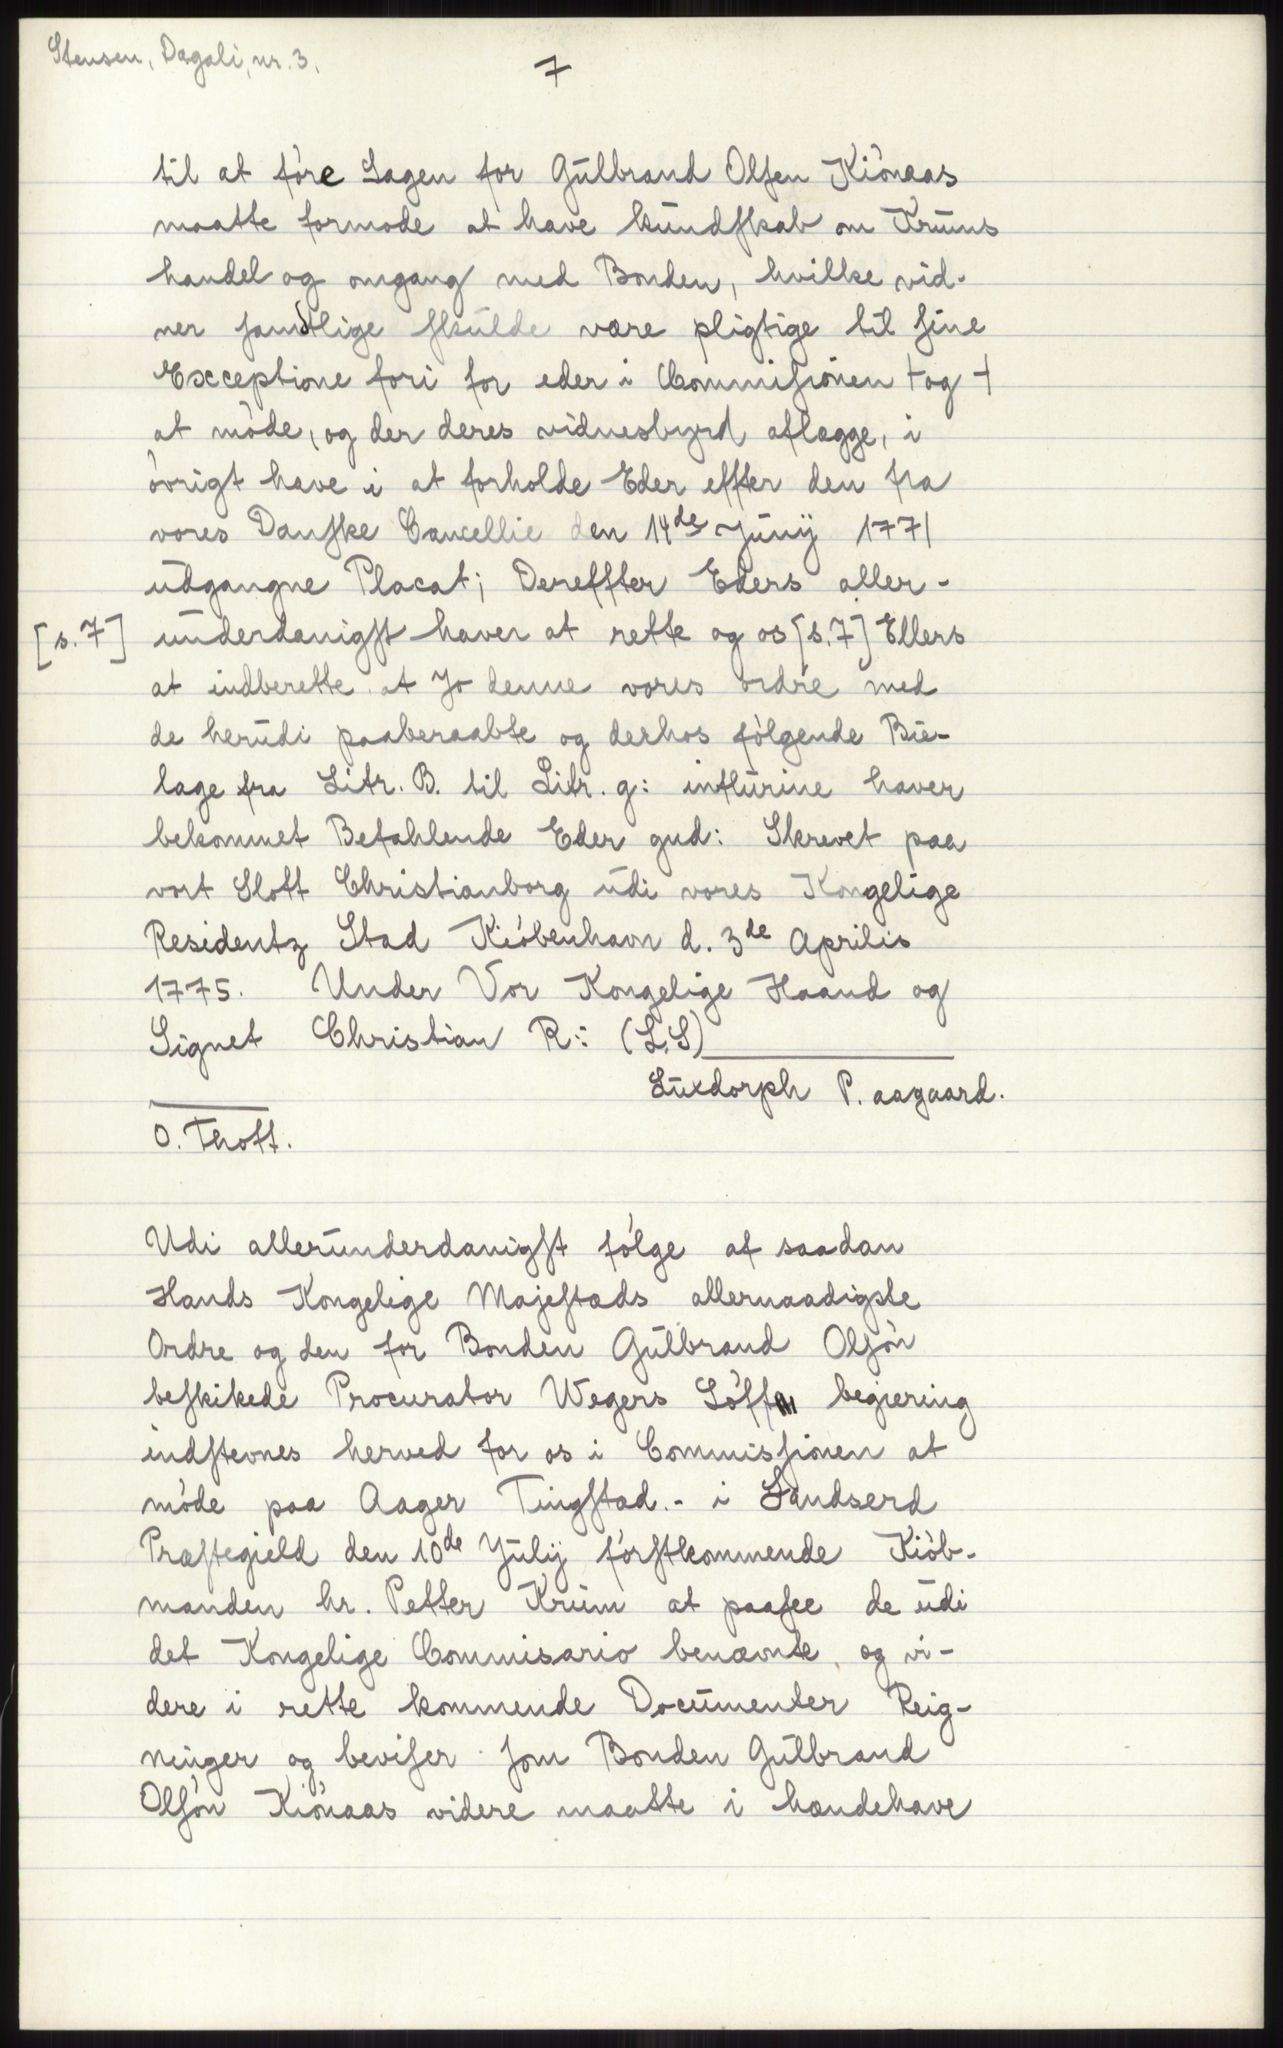 Stensen, Dagali, nr. 3.
7
til at føre Sagen for Gülbrand Olsen Kiönaas
maatte formode at have kündskab om Krüms
handel og omgang med Bonden, hvilke vid-
ner samdtlige skülde være pligtige til sine
Excceptione fori for eder i Commisionen + og +
at møde, og der deres vidnesbyrd aflægge, i
øvrigt have i at forholde Eder effter den fra
vores Danske Cancellie den 14de Jünÿ 1771
üdgangne Placat; Dereffter Eders aller-
[s. 7] ünderdanigst haver at rette og os [s. 7] Ellers
at indberette at Jo denne vores ordre med
de herüdi paaberaabte og derhos følgende Bie-
lage fra Litr. B. til Litr. g: inclürine haver
bekommet Befahlende Eder gud: Skrevet paa
vort Slott Christianborg üdi vores Kongelige
Residentz Stad Kiöbenhavn d. 3de Aprilis
1775. Under Vor Kongelige Haand og
Signet Christian R:: (L.S)
Lüxdorph P. aagaard.
O. Thott.
Udi alleründerdanigst følge af saadan
Hands Kongelige Majestæds allernaadigste
Ordre og den for Bonden Gülbrand Olsön
beskikede Procurator Wegers begiering
indstevnes herved for os i Commissionen at
møde paa Aager Tingstad.- i Sandserd
Præstegield den 10de Jülÿ førstkommende Kiöb-
manden hr. Petter Krüm at paasee de üdi
det Kongelige Commisario benævnte og vi-
dere i rette kommende Documenter Reig-
ninger og beviser som Bonden Gülbrand
Olsön Kiönaas videre maatte i hændehave